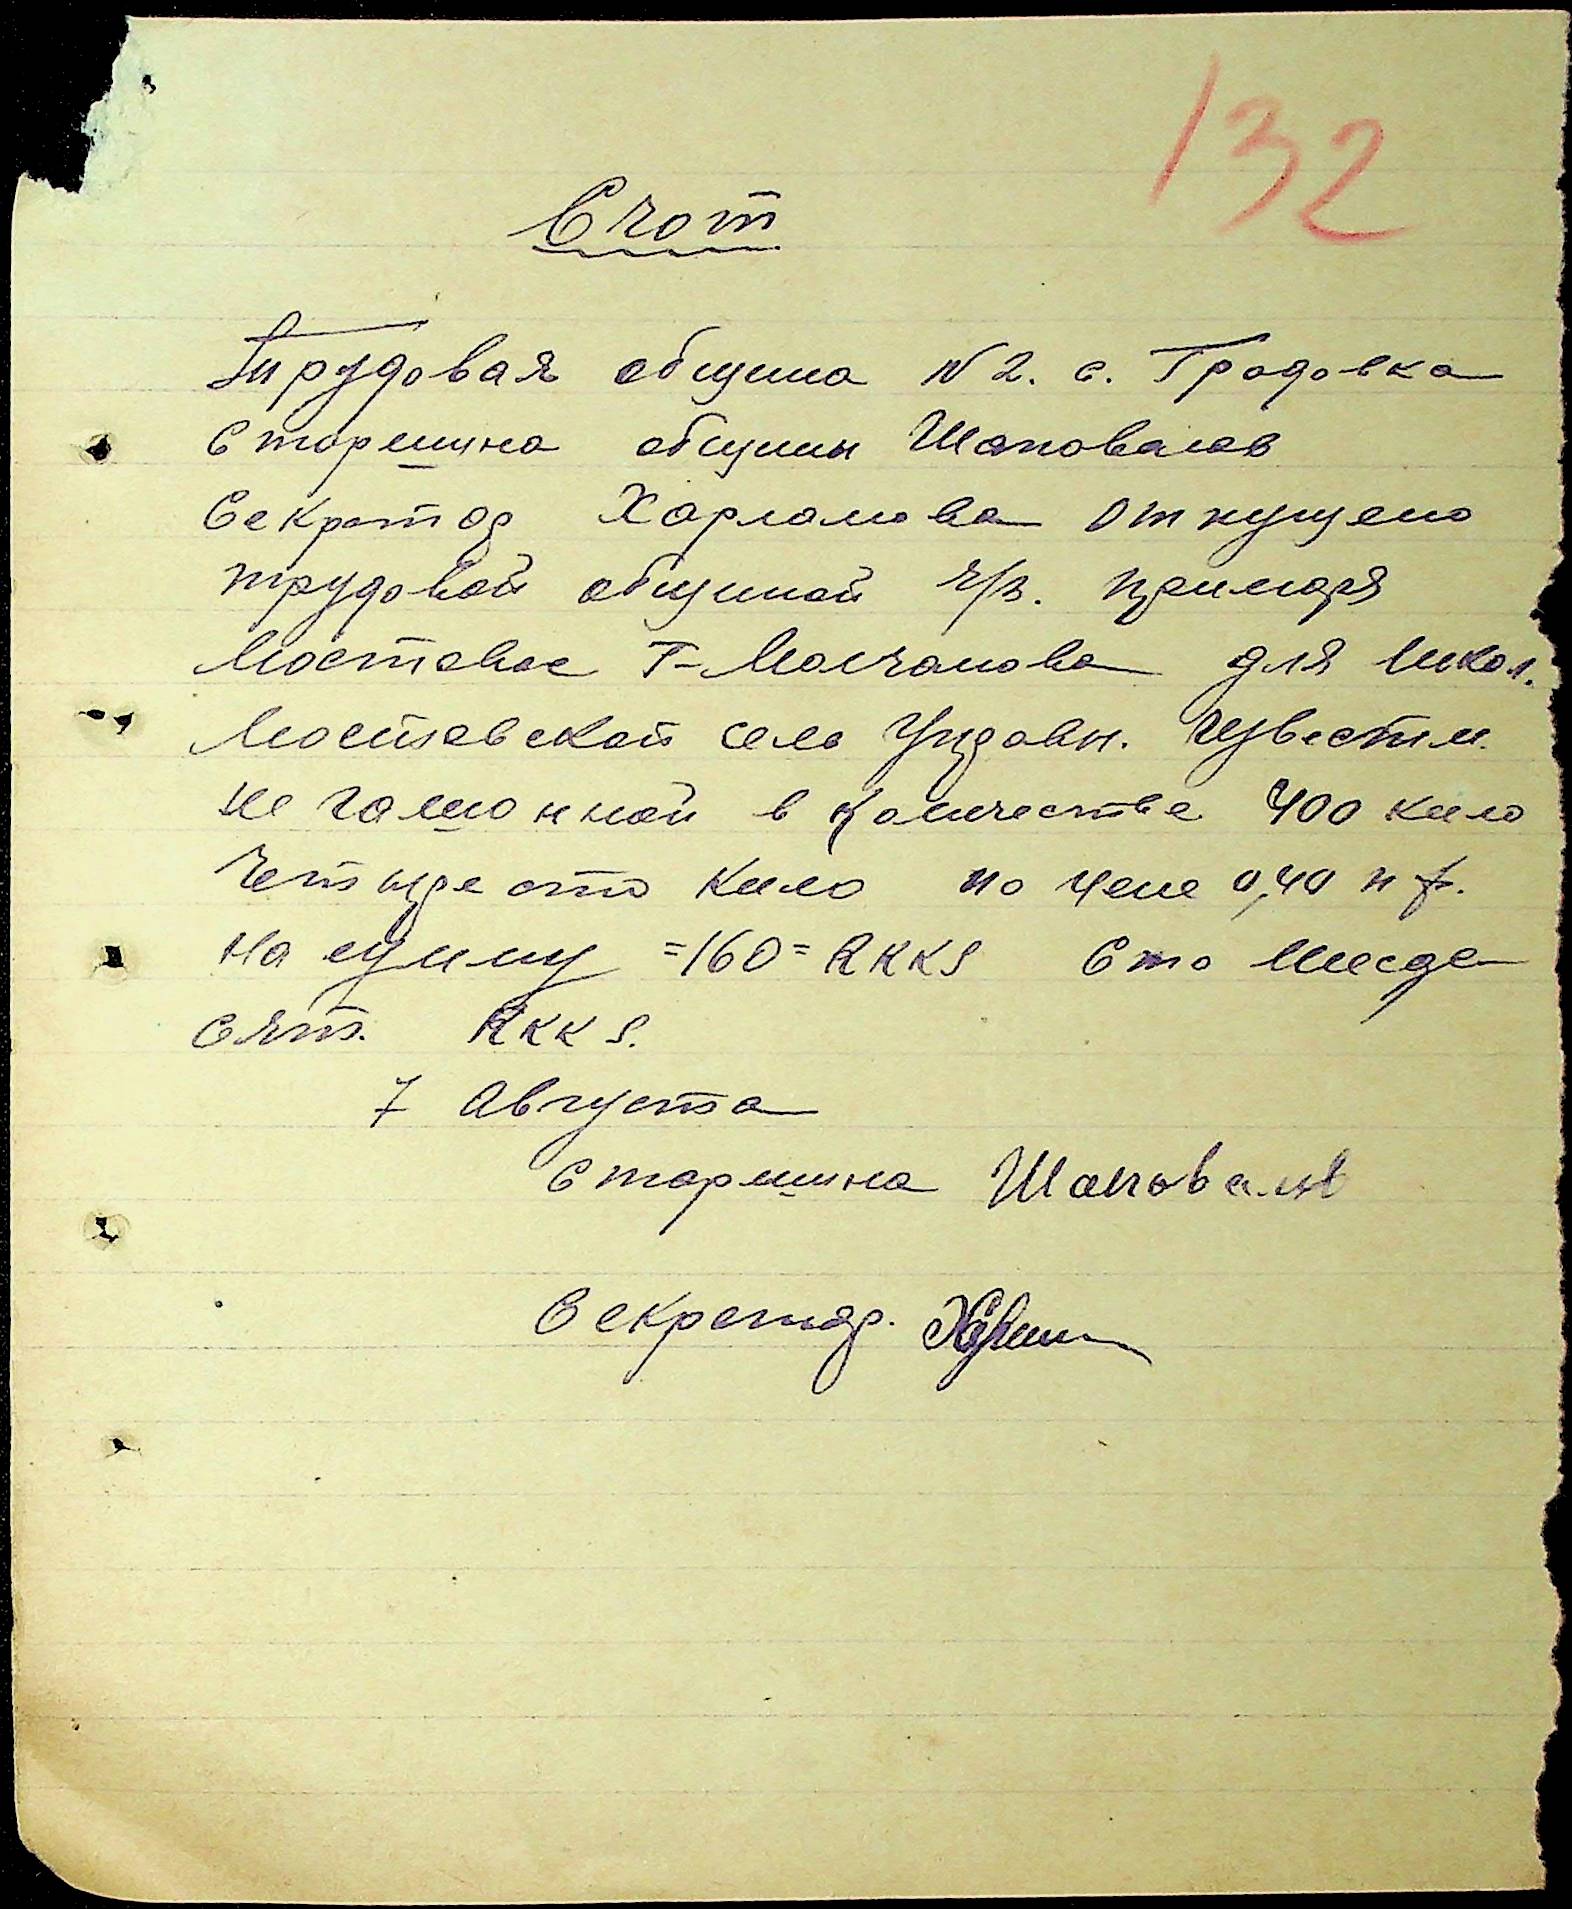 132
Счот
Трудовая община N 2. с. Градовка
Старшина общины Шаповалов
Секретар Харламова отпущено
трудовой общиной ч/з.
Мостовое Г-Молчанова для школ.
Мостовской села известы.
не гашонной в количестве 400 кило
Четыреста кило по цене 0,40 п ф.
на суму =160= RKKS Сто шесде
сят. RKKS.
7 Августа
Старшина Шаповалов
Секретар.